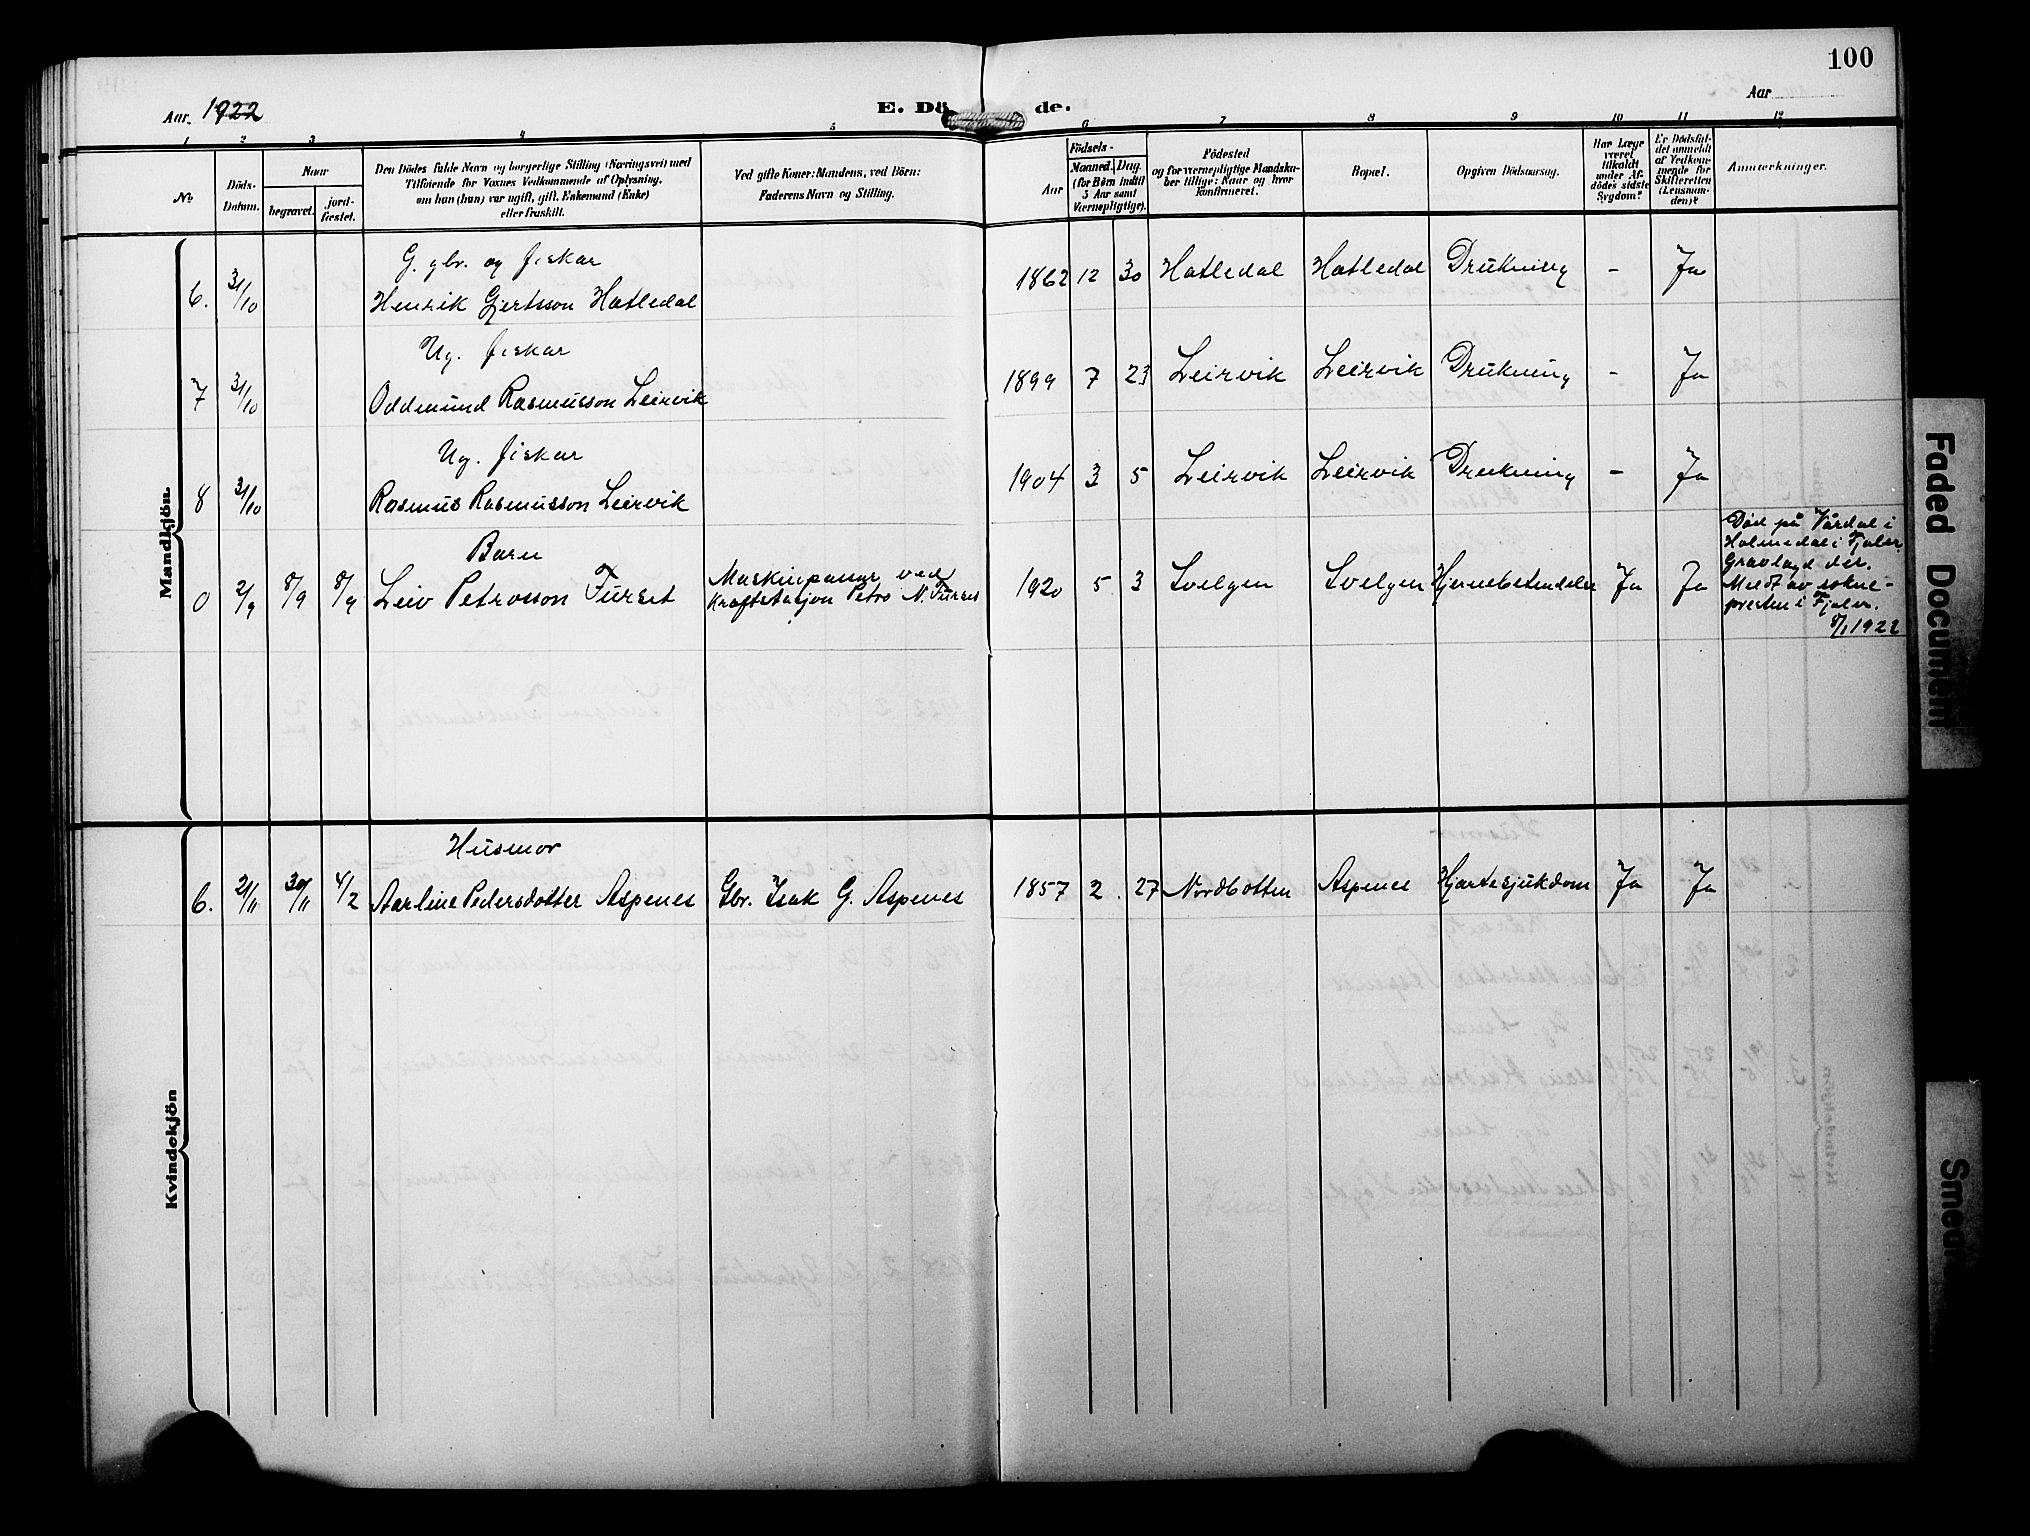 100
Aar. 1922
E. Dö de.
Aar
1 2 3 4 5 6 7 8 9 10 11 12
No
Döds-
Datum.
Naar
begravet.
jord-
fæstet.
Den Dödes fulde Navn og borgerlige Stilling (Næringsvei) med
Tilföiende for Voxnes Vedkommende af Oplysning,
om han (hun) var ugift, gift, Enkemand (Enke)
eller fraskilt.
Ved gifte Koner: Mandens, ved Börn:
Faderens Navn og Stilling.
Födsels-
Aar
Maaned. Dag.
(for Börn indtil
5 Aar samt
Værnepligtige).
Födested
og for værnepligtige Mandska-
ber tillige: Naar og hvor
konfirmeret.
Bopæl.
Opgiven Dödsaarsag.
Har Læge
været
tilkaldt
under Af-
dödes sidste
Sygdom?
Er Dödsfal-
det anmeldt
af Vedkom-
mende for
Skifteretten
(Lensman-
den)?
Anmærkninger.
Mandkjön.
G. gbr. og fiskar
6. 31/10 Henrik Gjertsson Hatledal 1862 12 30 Hatledal Hatledal Drukning - Ja
Ug. fiskar
7 31/10 Oddmund Rasmusson Leirvik 1899 7 23 Leirvik Leirvik Drukning - Ja
Ug. fiskar
8 31/10 Rasmus Rasmusson Leirvik 1904 3 5 Leirvik Leirvik Drukning - Ja
Barn
0 2/9 8/9 8/9 Leiv Petrosson Furset Maskinpassar ved
Kraftstasjon Petro N. Furset 1920 5 3 Svelgen Svelgen Hjernebetendelse Ja Ja
Död på Vårdal i
Holmedal i Fjaler.
Gravlagd der.
Meldt av sokne-
presten i Fjaler.
8/1 1922
Kvindekjön
Husmor
6. 21/11 30/11 4/2 Aarline Pedersdotter Aspenes Gbr. Isak G. Aspenes 1857 2. 27 Nordbotten Aspenes Hjartesjukdom Ja Ja
Faded Document
Smear